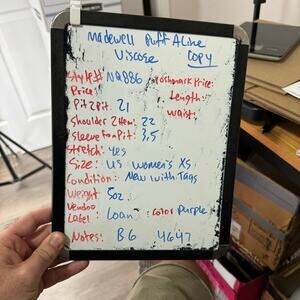 Madewell Puff Aline
Viscose COPY
Style# NQ886 Poshmark Price:
Price: Length:
Pit 2 pit: 21 waist:
Shoulder 2 Hem: 22
Sleeve to Pit: 3.5
Stretch: yes
Size: US Women's XS
Condition: New with Tags
Weight 5oz
Vendoo
Label Loan color Purple
Notes: B6 4647